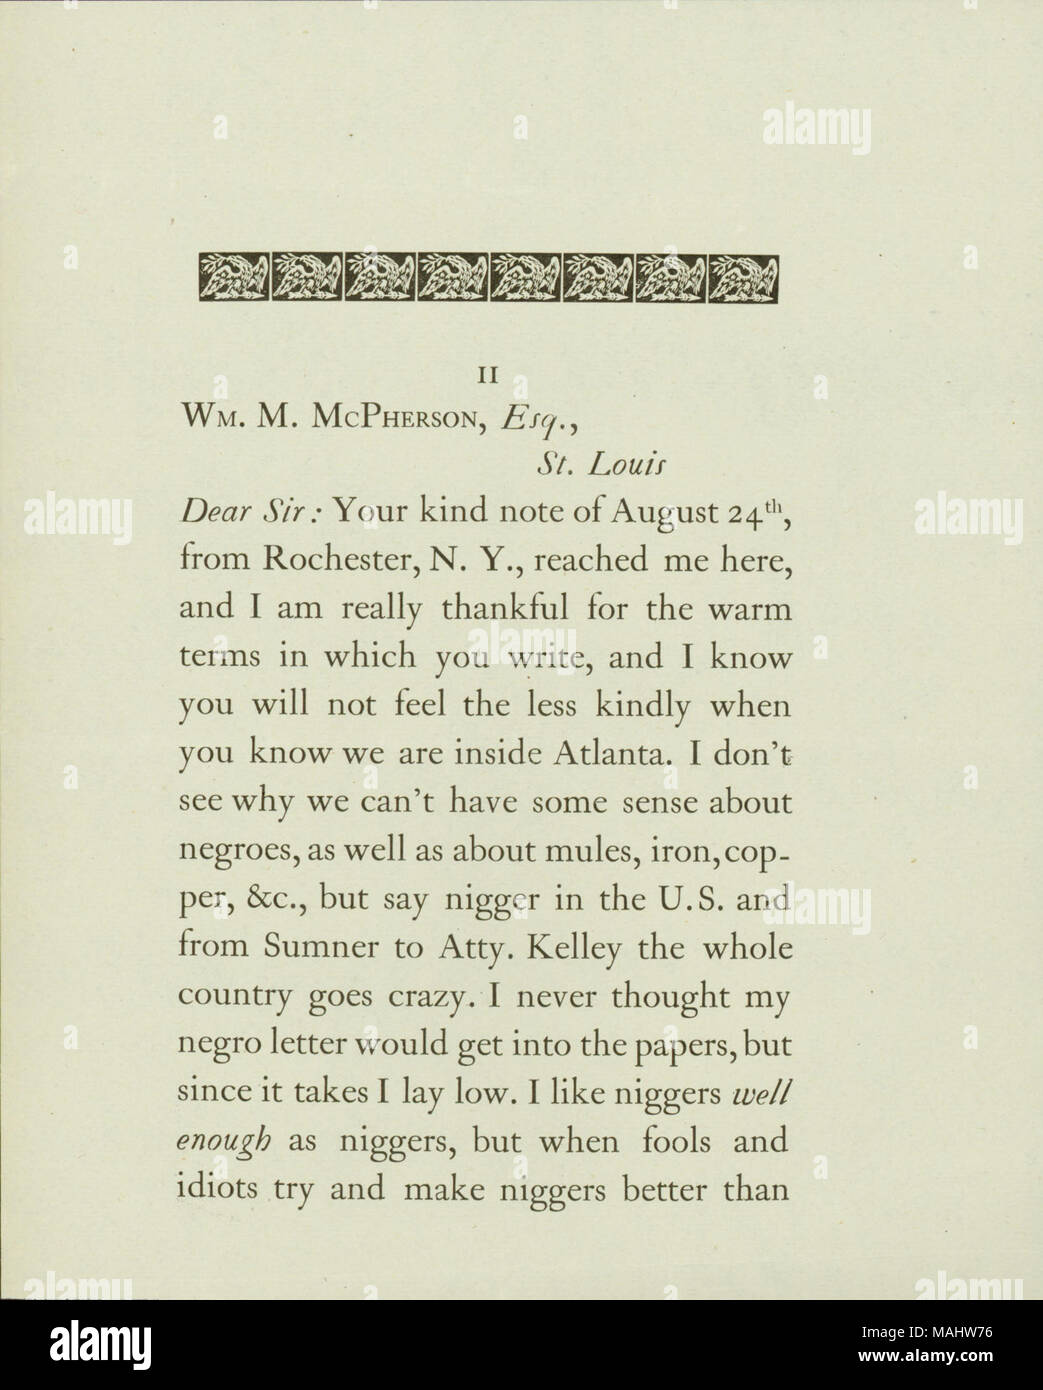 II
WM. M. MCPHERSON, Esq.,
St. Louis
Dear Sir: Your kind note of August 24th,
from Rochester, N. Y., reached me here,
and I am really thankful for the warm
terms in which you write, and I know
you will not feel the less kindly when
you know we are inside Atlanta. I don't
see why we can't have some sense about
negroes, as well as about mules, iron, cop-
per, &c., but say nigger in the U.S. and
from Sumner to Atty. Kelley the whole
country goes crazy. I never thought my
negro letter would get into the papers, but
since it takes I lay low. I like niggers well
enough as niggers, but when fools and
idiots try and make niggers better than
alamy
Image ID: MAHW76
www.alamy.com